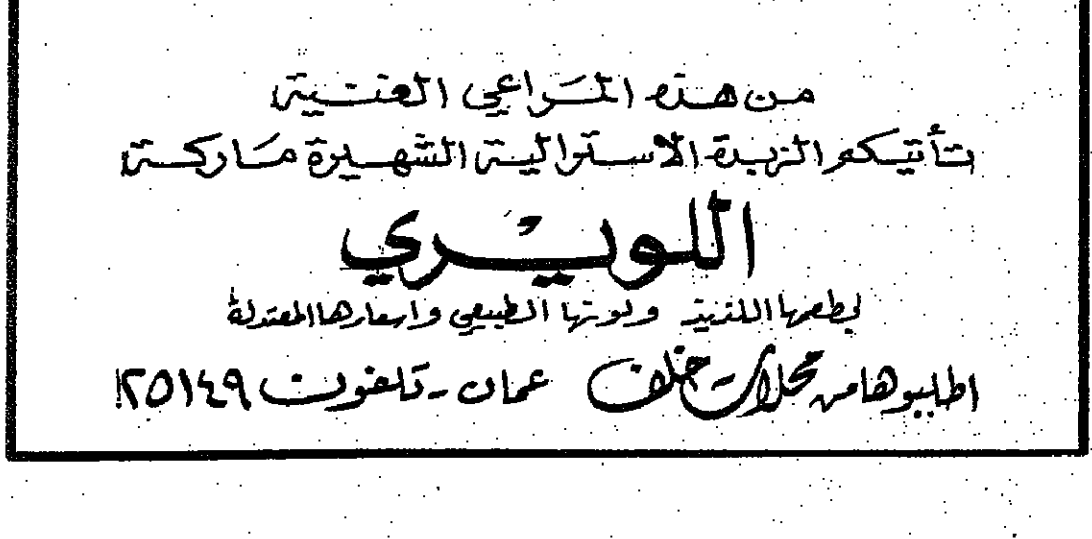 من هذه المراعي الغنية
تأتيكم الزبدة الاسترالية الشهيرة ماركة
اللويري
بطعمها اللذيذ ولونها الطبيعي واسعارها المعتدلة
اطلبوها من محلات خلف عمان - تلفون ٢٥١٤٩